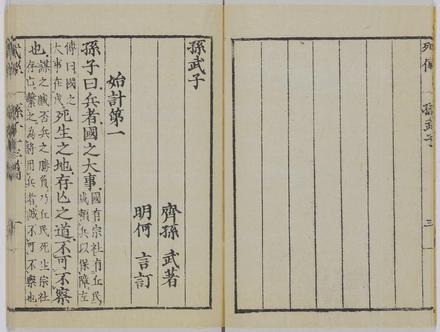 孫武子
三
孫武子
齊孫 武著
明何 言訂
始計第一
孫子曰兵者國之大事國有宗社有丘民咸賴兵以保障左
傳曰國之大事在戎死生之地存亾之道不可不察
也謀之臧否兵之勝負乃丘民死生宗社存亡繫之為將用兵者誠不可不察也